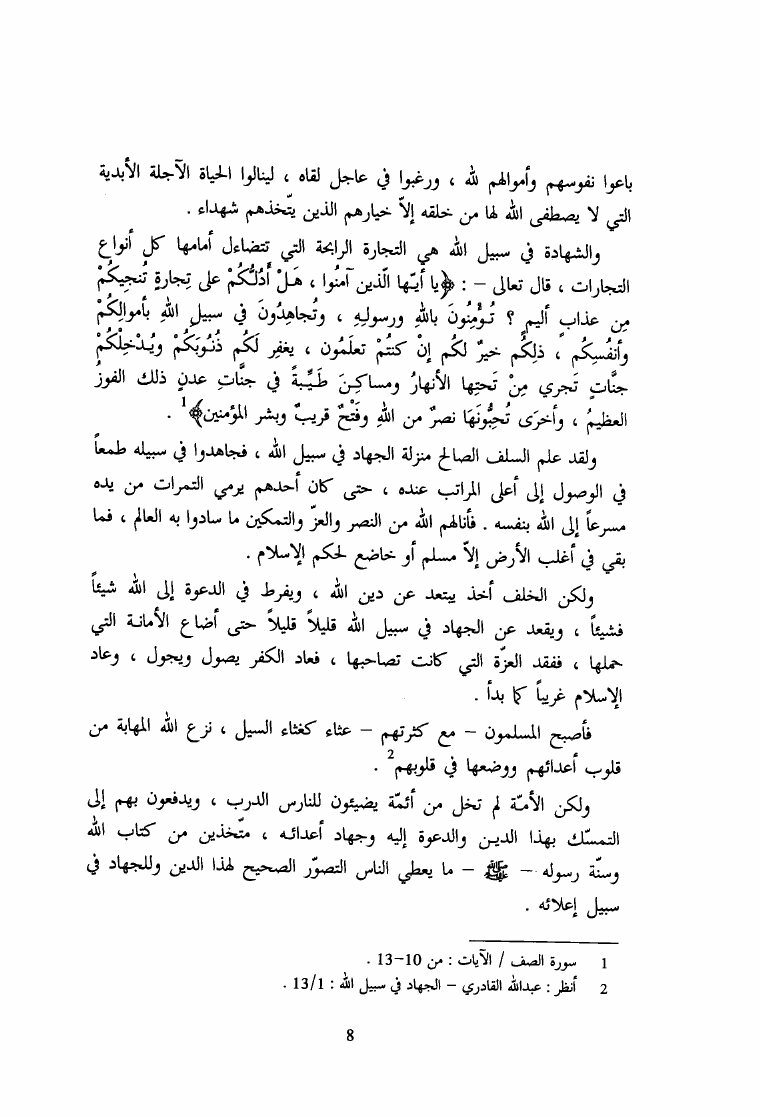 باعوا نفوسهم وأموالهم لله ، ورغبوا في عاجل لقاه ، لينالوا الحياة الآجلة الأبدية
التي لا يصطفى الله لها من خلقه إلاّ خيارهم الذين يتّخذهم شهداء .
والشهادة في سبيل الله هي التجارة الرابحة التي تتضاءل أمامها كل أنواع
التجارات ، قال تعالى – : ﴿يا أيّها الّذين آمنُوا ، هَلْ أَدُلُّكُمْ على تِجارةٍ تُنجيكُمْ
مِن عذابٍ أليمٍ ؟ تُؤْمِنُونَ باللهِ ورسولِهِ ، وتُجاهِدُونَ في سبيلِ اللهِ بأموالِكُمْ
وأنفُسِكُم ، ذلِكُم خيرٌ لكُم إنْ كنتُمْ تعلَمُون ، يغفِر لَكُم ذُنُوبَكُمْ ويُدْخِلْكُمْ
جنَّاتٍ تَجري مِنْ تَحتِها الأنهارُ ومساكِنَ طَيِّبةً في جنَّاتِ عدنٍ ذلك الفوزُ
العظيمُ ، وأخرَى تُحِبُّونَهَا نصرٌ من اللهِ وفَتْحٌ قريبٌ وبشر المؤمنين﴾1 .
ولقد علم السلف الصالح منزلة الجهاد في سبيل الله ، فجاهدوا في سبيله طمعاً
في الوصول إلى أعلى المراتب عنده ، حتى كان أحدهم يرمي التمرات من يده
مسرعاً إلى الله بنفسه . فأنالهم الله من النصر والعزّ والتمكين ما سادوا به العالم ، فما
بقي في أغلب الأرض إلاّ مسلم أو خاضع لحكم الإسلام .
ولكن الخلف أخذ يبتعد عن دين الله ، ويفرط في الدعوة إلى الله شيئاً
فشيئاً ، ويقعد عن الجهاد في سبيل الله قليلاً قليلاً حتى أضاع الأمانة التي
حملها ، ففقد العزّة التي كانت تصاحبها ، فعاد الكفر يصول ويجول ، وعاد
الإسلام غريباً كما بدأ .
فأصبح المسلمون – مع كثرتهم – عثاء كغثاء السيل ، نزع الله المهابة من
قلوب أعدائهم ووضعها في قلوبهم2 .
ولكن الأمّة لم تخل من أئمّة يضيئون للنارس الدرب ، ويدفعون بهم إلى
التمسّك بهذا الدين والدعوة إليه وجهاد أعدائه ، متّخذين من كتاب الله
وسنّة رسوله – ﷺ – ما يعطي الناس التصوّر الصحيح لهذا الدين وللجهاد في
سبيل إعلائه .
1 سورة الصف / الآيات : من 10–13 .
2 أنظر : عبدالله القادري – الجهاد في سبيل الله : 13/1 .
8